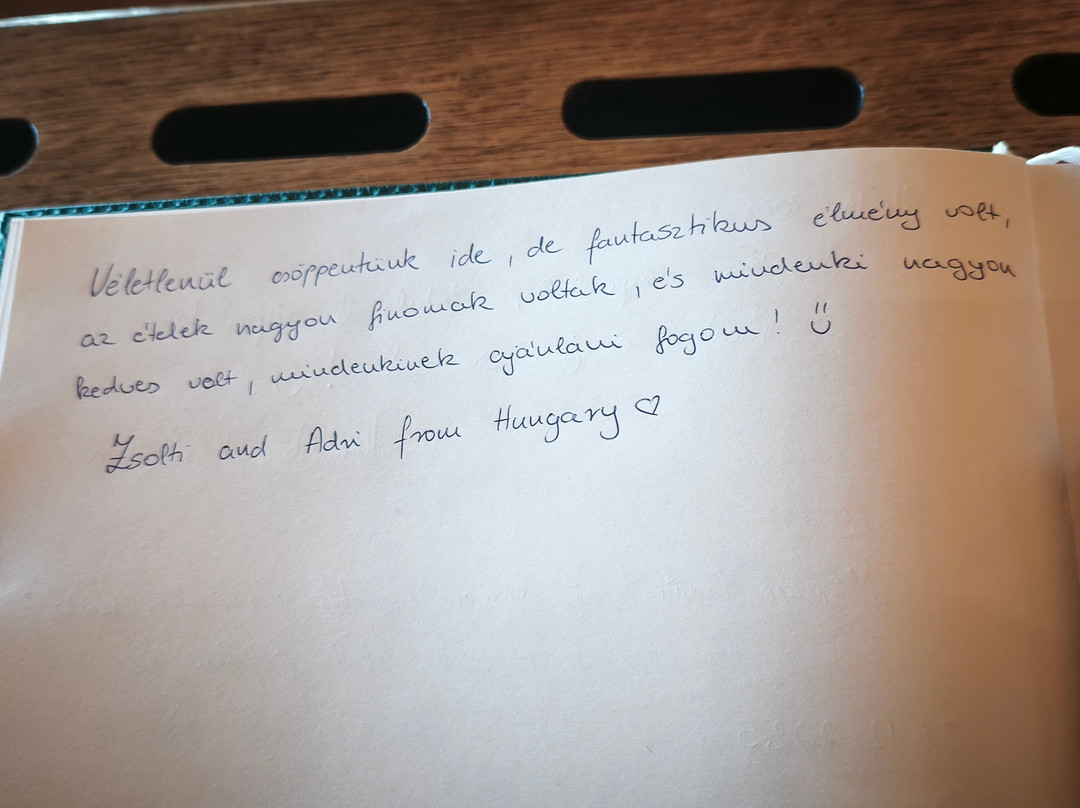 Véletlenül csöppentünk ide, de fantasztikus élmény volt,
az ételek nagyon finomak voltak, és mindenki nagyon
kedves volt, mindenkinek ajánlani fogom! Ü
Zsolti and Adri from Hungary ♡